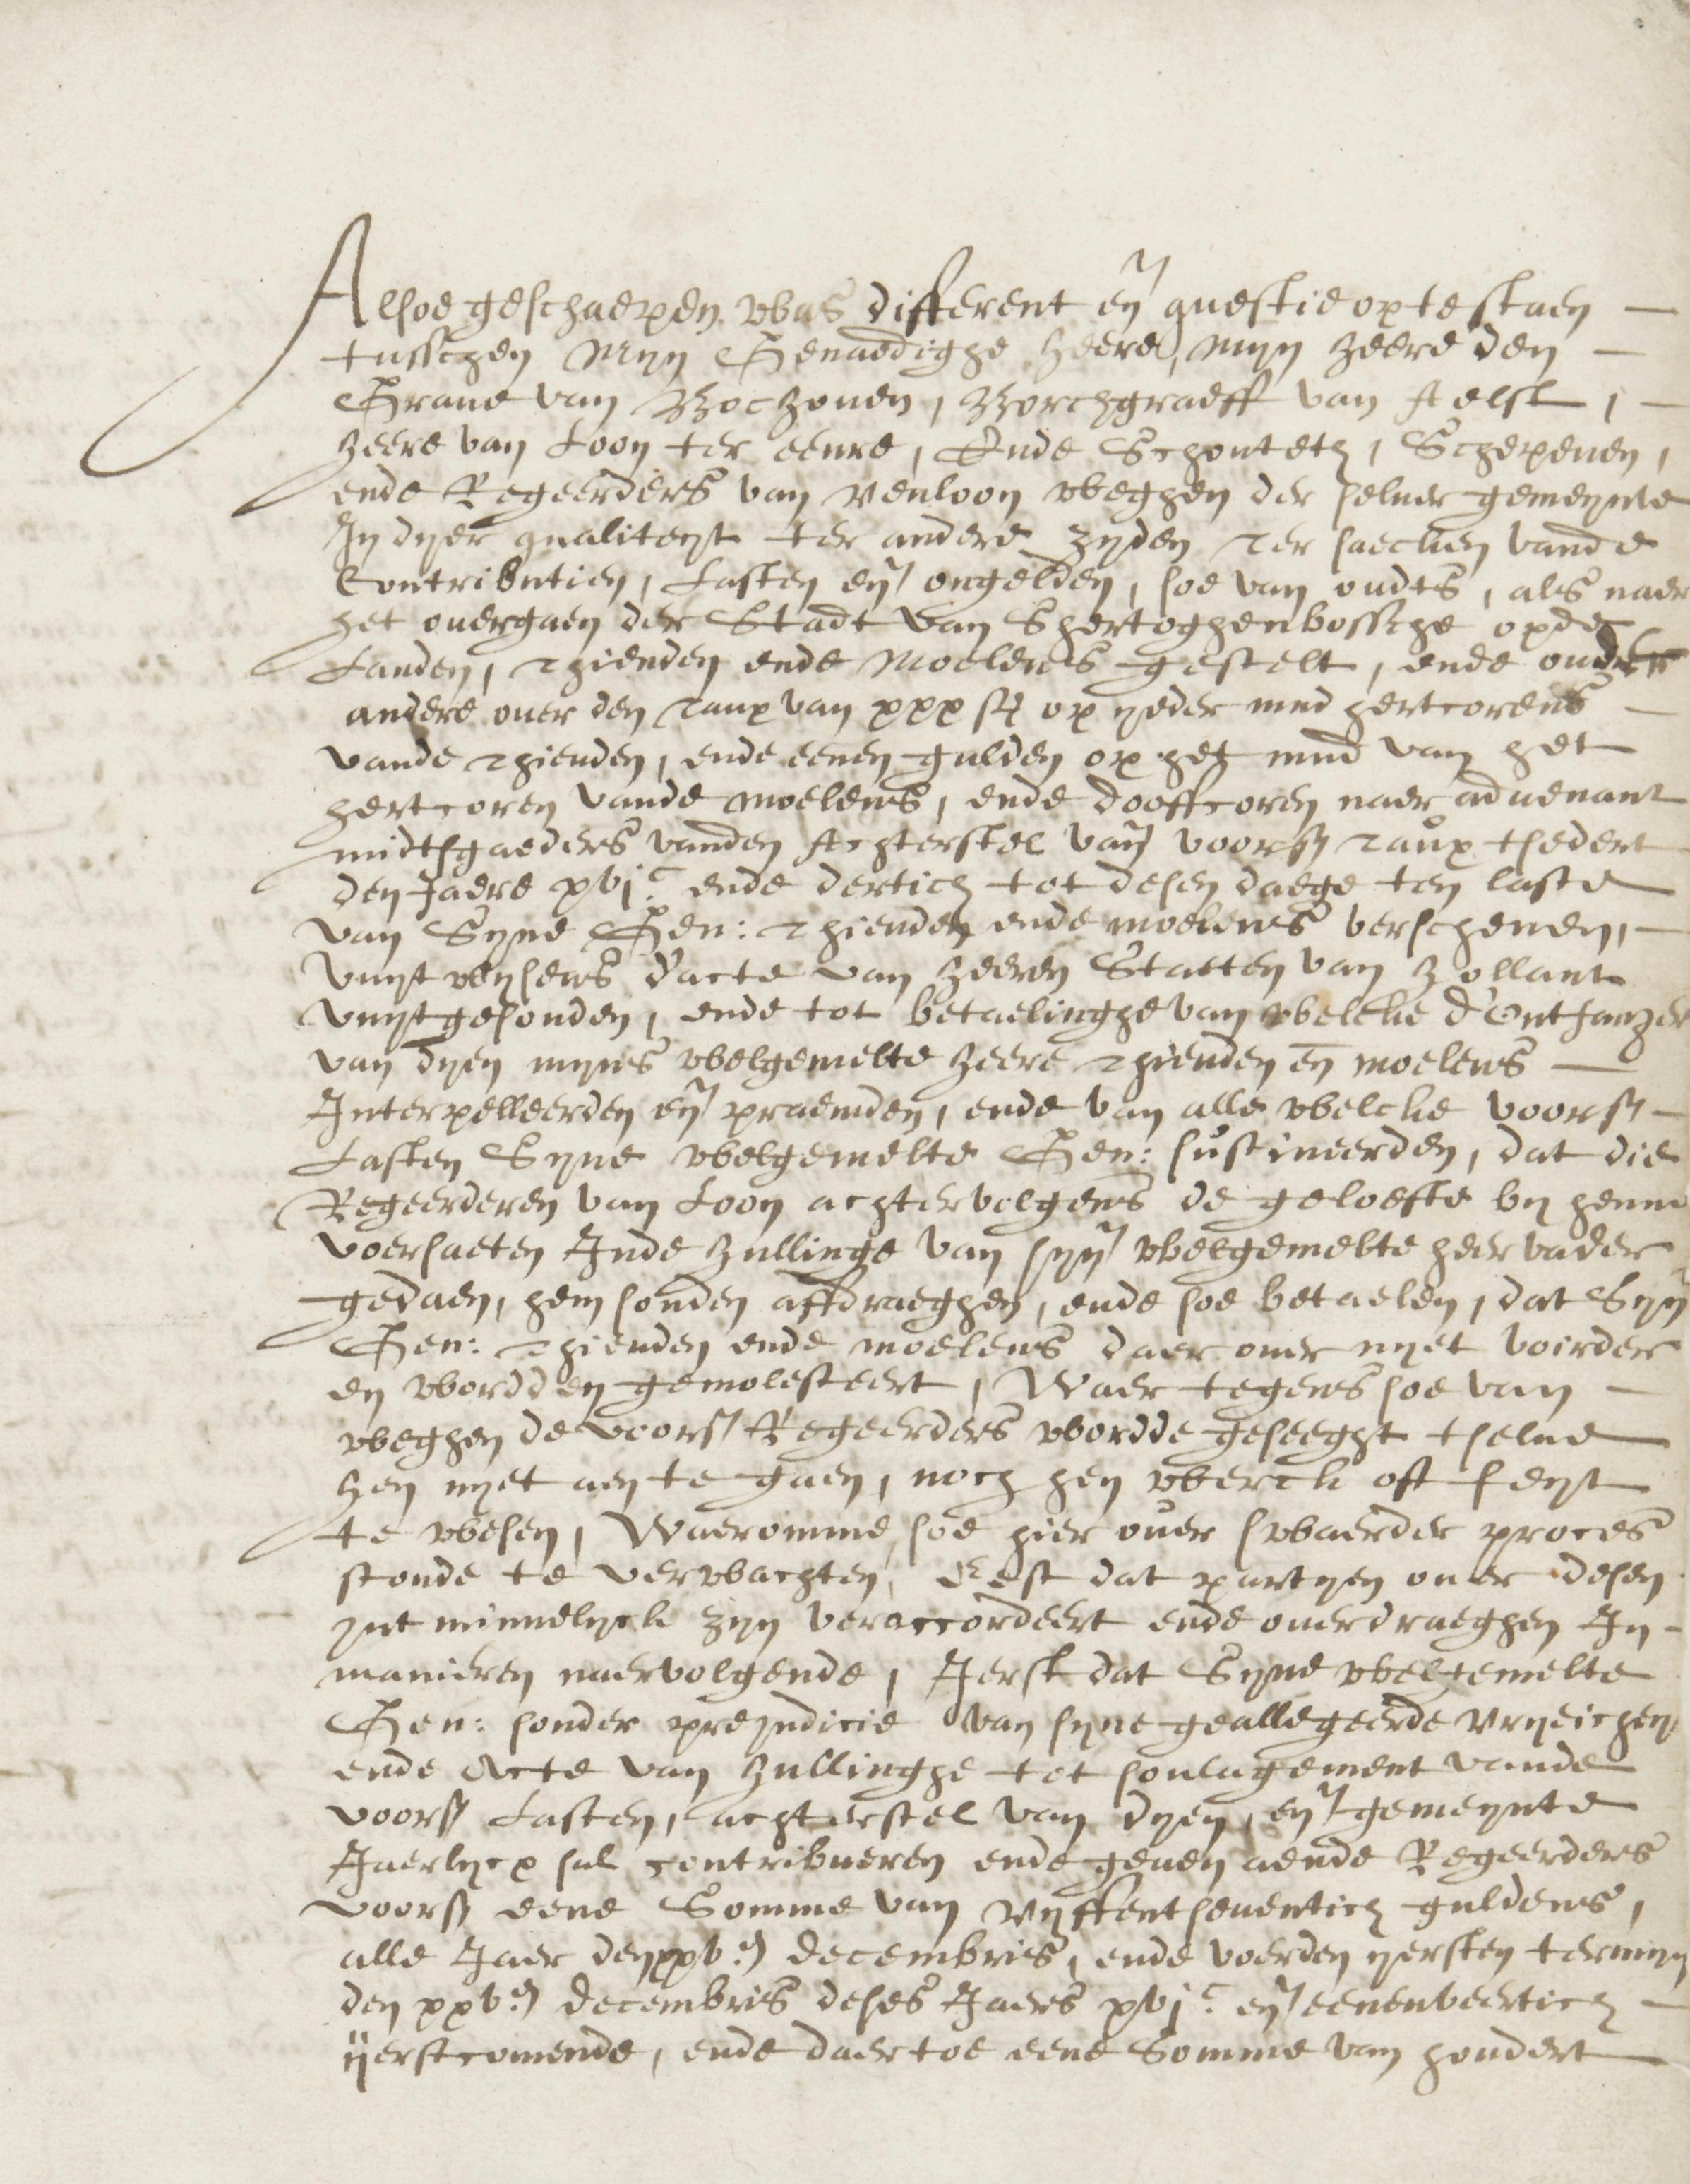 Alsoe geschaepen was different en̄ questie op te staen
tusschen Mijn Genaedighe Heere, mijn heere den
Grave van Bochoven, Borchgraeff van Aelst,
heere van Loon ter eenre, Ende Schouteth, Schepenen,
ende Regeerders van Venloon weghen der selver gemeynte
In dyer qualiteyt ter andere zyden Ter saecken vande
Contributien, Lasten en̄ ongelden, soe van oudts, als naer
het overgaen der Stadt van Shertoghenbossche opde
Landen, Thienden ende Moelens gestelt, ende onder
andere over den Taux van xxx st op yeder mud hertcorens
vande Thienden, ende eenen gulden op het mud van het
hertcoren vande moelens, ende dooffcoren naer advenant
midtsgaeders vanden Achterstel van voors Taux tsedert
den Jaere xvjc ende dertich tot desen daege ten laste
van Syne Gen: Thienden ende moelens verschenen,
vuyt wysens d'acte van heeren Staeten van Hollant
vuytgesonden, ende tot betaelinghe van welcke d'Ontfanger
van dyen myns welgemelte heere Thienden en̄ moelens
Interpelleerden en̄ praemden, ende van alle welcke voors
Lasten Syne welgemelte Gen: sustineerden, dat die
Regeerderen van Loon achtervolgens de geloefte by henne
voersaeten Inde hullinge van syn welgemelte heer vader
gedaen, hem souden affdraeghen, ende soe betaelen, dat Syn
Gen: Thienden ende moelens daer over nyet voirder
en wordden gemolesteert, Waer tegens soe van
weghen de voors Regeerders wordde geseeght tselve
hen nyet aen te gaen, noch hen werck oft feyt
te wesen, Waeromme soe hier over swaerder proces
stonde te verwachten, Eest dat partyen over desen
int minnelyck zyn veraccordeert ende overdraeghen In
manieren naervolgende, Ierst dat Syne welgemelte
Gen: sonder prejudicie van syne geallegeerde vryeichen
ende Acte van hullinghe tot soulagement vande
voors Lasten, achterstel van dyen, en̄ gemeynte
Jaerlycx sal contribueren ende geven aende Regeerders
voors eene Somme van vyffentseventich guldens,
alle Jaer den xxven decembris, ende voerden yersten termyn
den xxven decembris deses Jaers xvjc en̄ eenenveertich
yerstcomende, ende daertoe eene Somme van hondert